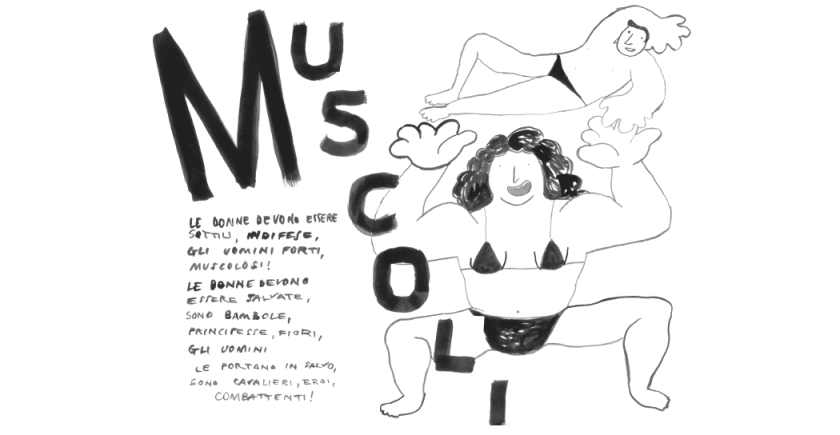 MUSCOLI
LE DONNE DEVONO ESSERE
SOTTILI, INDIFESE,
GLI UOMINI FORTI,
MUSCOLOSI!
LE DONNE DEVONO
ESSERE SALVATE,
SONO BAMBOLE,
PRINCIPESSE, FIORI,
GLI UOMINI
LE PORTANO IN SALVO,
SONO CAVALIERI, EROI,
COMBATTENTI!